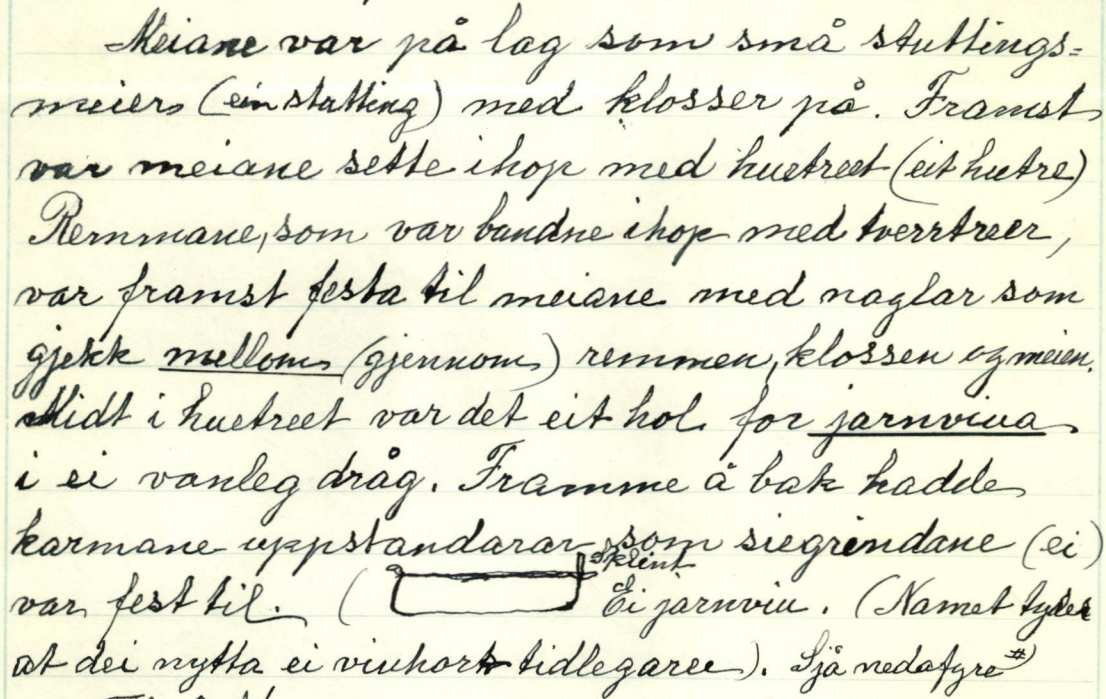 Meiane var på lag som små stuttings=
meiers (ein statting) med klosser på. Framst
var meiane sette ihop med huetreet (eit huetre)
Remmane, som var bundne ihop med tverrtreer,
var framst festa til meiane med naglar som
gjekk mellom (gjennom) remmen, klossen og meien.
Midt i huetreet var det eit hol for jarnviua
i ei vanleg dråg. Framme å bak hadde
karmane uppstandarar som siegrindane (ei)
skeint
var fest til. ( Ei jarnviu. (Namet tyder
at dei nytta ei viuhork tidlegaree). Sjå nedafyre #)